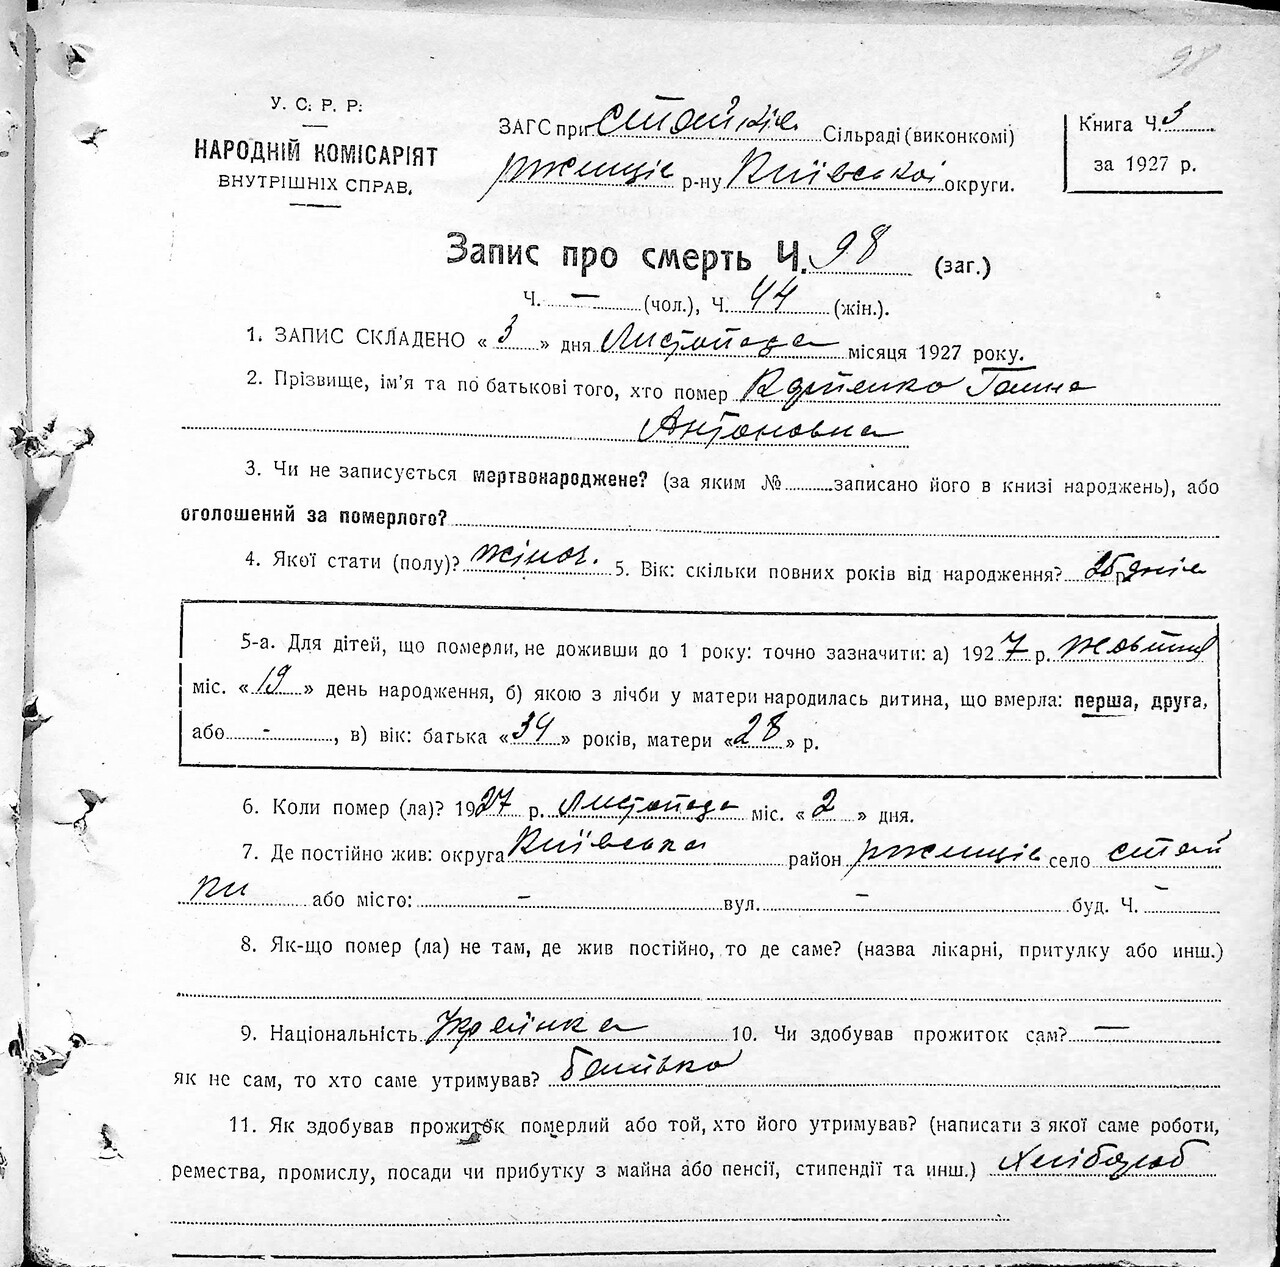 98
У. С. Р. Р.
НАРОДНІЙ КОМІСАРІЯТ
ВНУТРІШНІХ СПРАВ.
ЗАГС при Стайків Сільраді (виконкомі)
Ржищів р-ну Київської округи.
Книга Ч. 3
за 1927 р.
Запис про смерть Ч. 98 (заг.)
Ч. — (чол.), Ч. 44 (жін.).
1. ЗАПИС СКЛАДЕНО « 3 » дня Листопада місяця 1927 року.
2. Прізвище, ім'я та по батькові того, хто помер Галина
Антоновна
3. Чи не записується мертвонароджене? (за яким № записано його в книзі народжень), або
оголошений за померлого?
4. Якої стати (полу)? жіноч. 5. Вік: скільки повних років від народження? днів
5-а. Для дітей, що померли, не доживши до 1 року: точно зазначити: а) 1927 р. Жовтня
міс. « 19 » день народження, б) якою з лічби у матери народилась дитина, що вмерла: перша, друга,
або - , в) вік: батька « 34 » років, матери « 28 » р.
6. Коли помер (ла)? 1927 р. Листопада міс. « 2 » дня.
7. Де постійно жив: округа Київська район Ржищів село Стай
ки або місто: – вул. – буд. Ч. –
8. Як-що помер (ла) не там, де жив постійно, то де саме? (назва лікарні, притулку або инш.)
9. Національність Українка 10. Чи здобував прожиток сам? —
як не сам, то хто саме утримував? батько
11. Як здобував прожиток померлий або той, хто його утримував? (написати з якої саме роботи,
ремества, промислу, посади чи прибутку з майна або пенсії, стипендії та инш.) Хлібороб